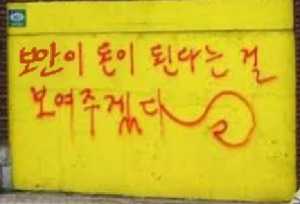 보안이 돈이 된다는 걸
보여주겠다